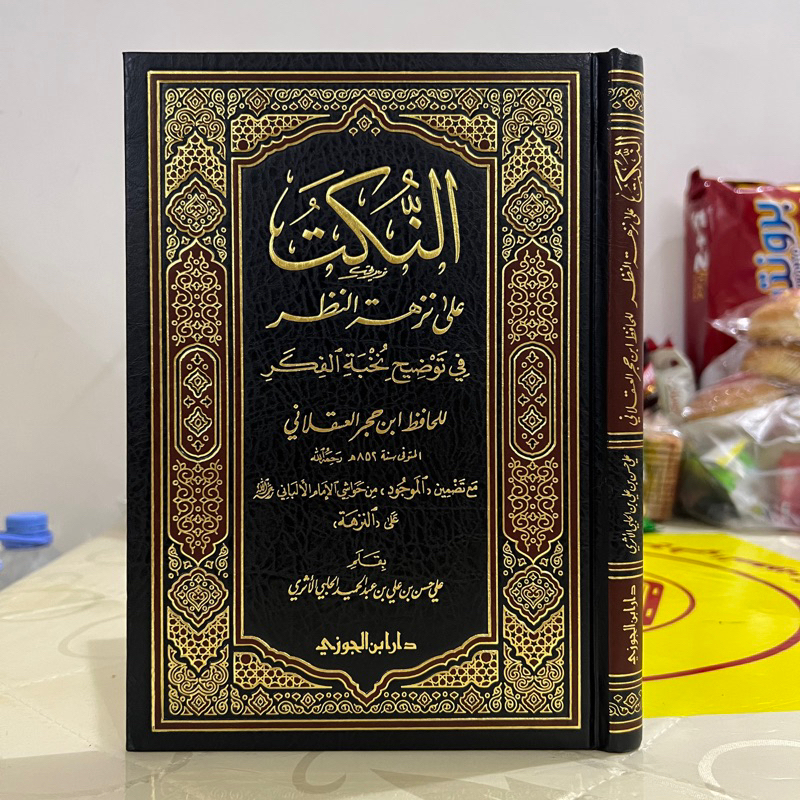 النُّكَتُ
على نزهة النظر
في تَوْضِيحِ نُخْبَةِ الفِكَرِ
للحافظ ابن حجر العسقلاني
المتوفى سنة ٨٥٢ هـ رحمه الله
مَعَ تَضْمِين «المَوجُودِ» مِن حَواشي الإمام الألباني
عَلَى «النُّزْهَة»
بقلم
علي حسن بن علي بن عبد الحميد الحلبي الأثري
دار ابن الجوزي
النكت على نزهة النظر للحافظ ابن حجر العسقلاني
علي حسن بن علي بن الحلبي الأثري
دار ابن الجوزي
2+2